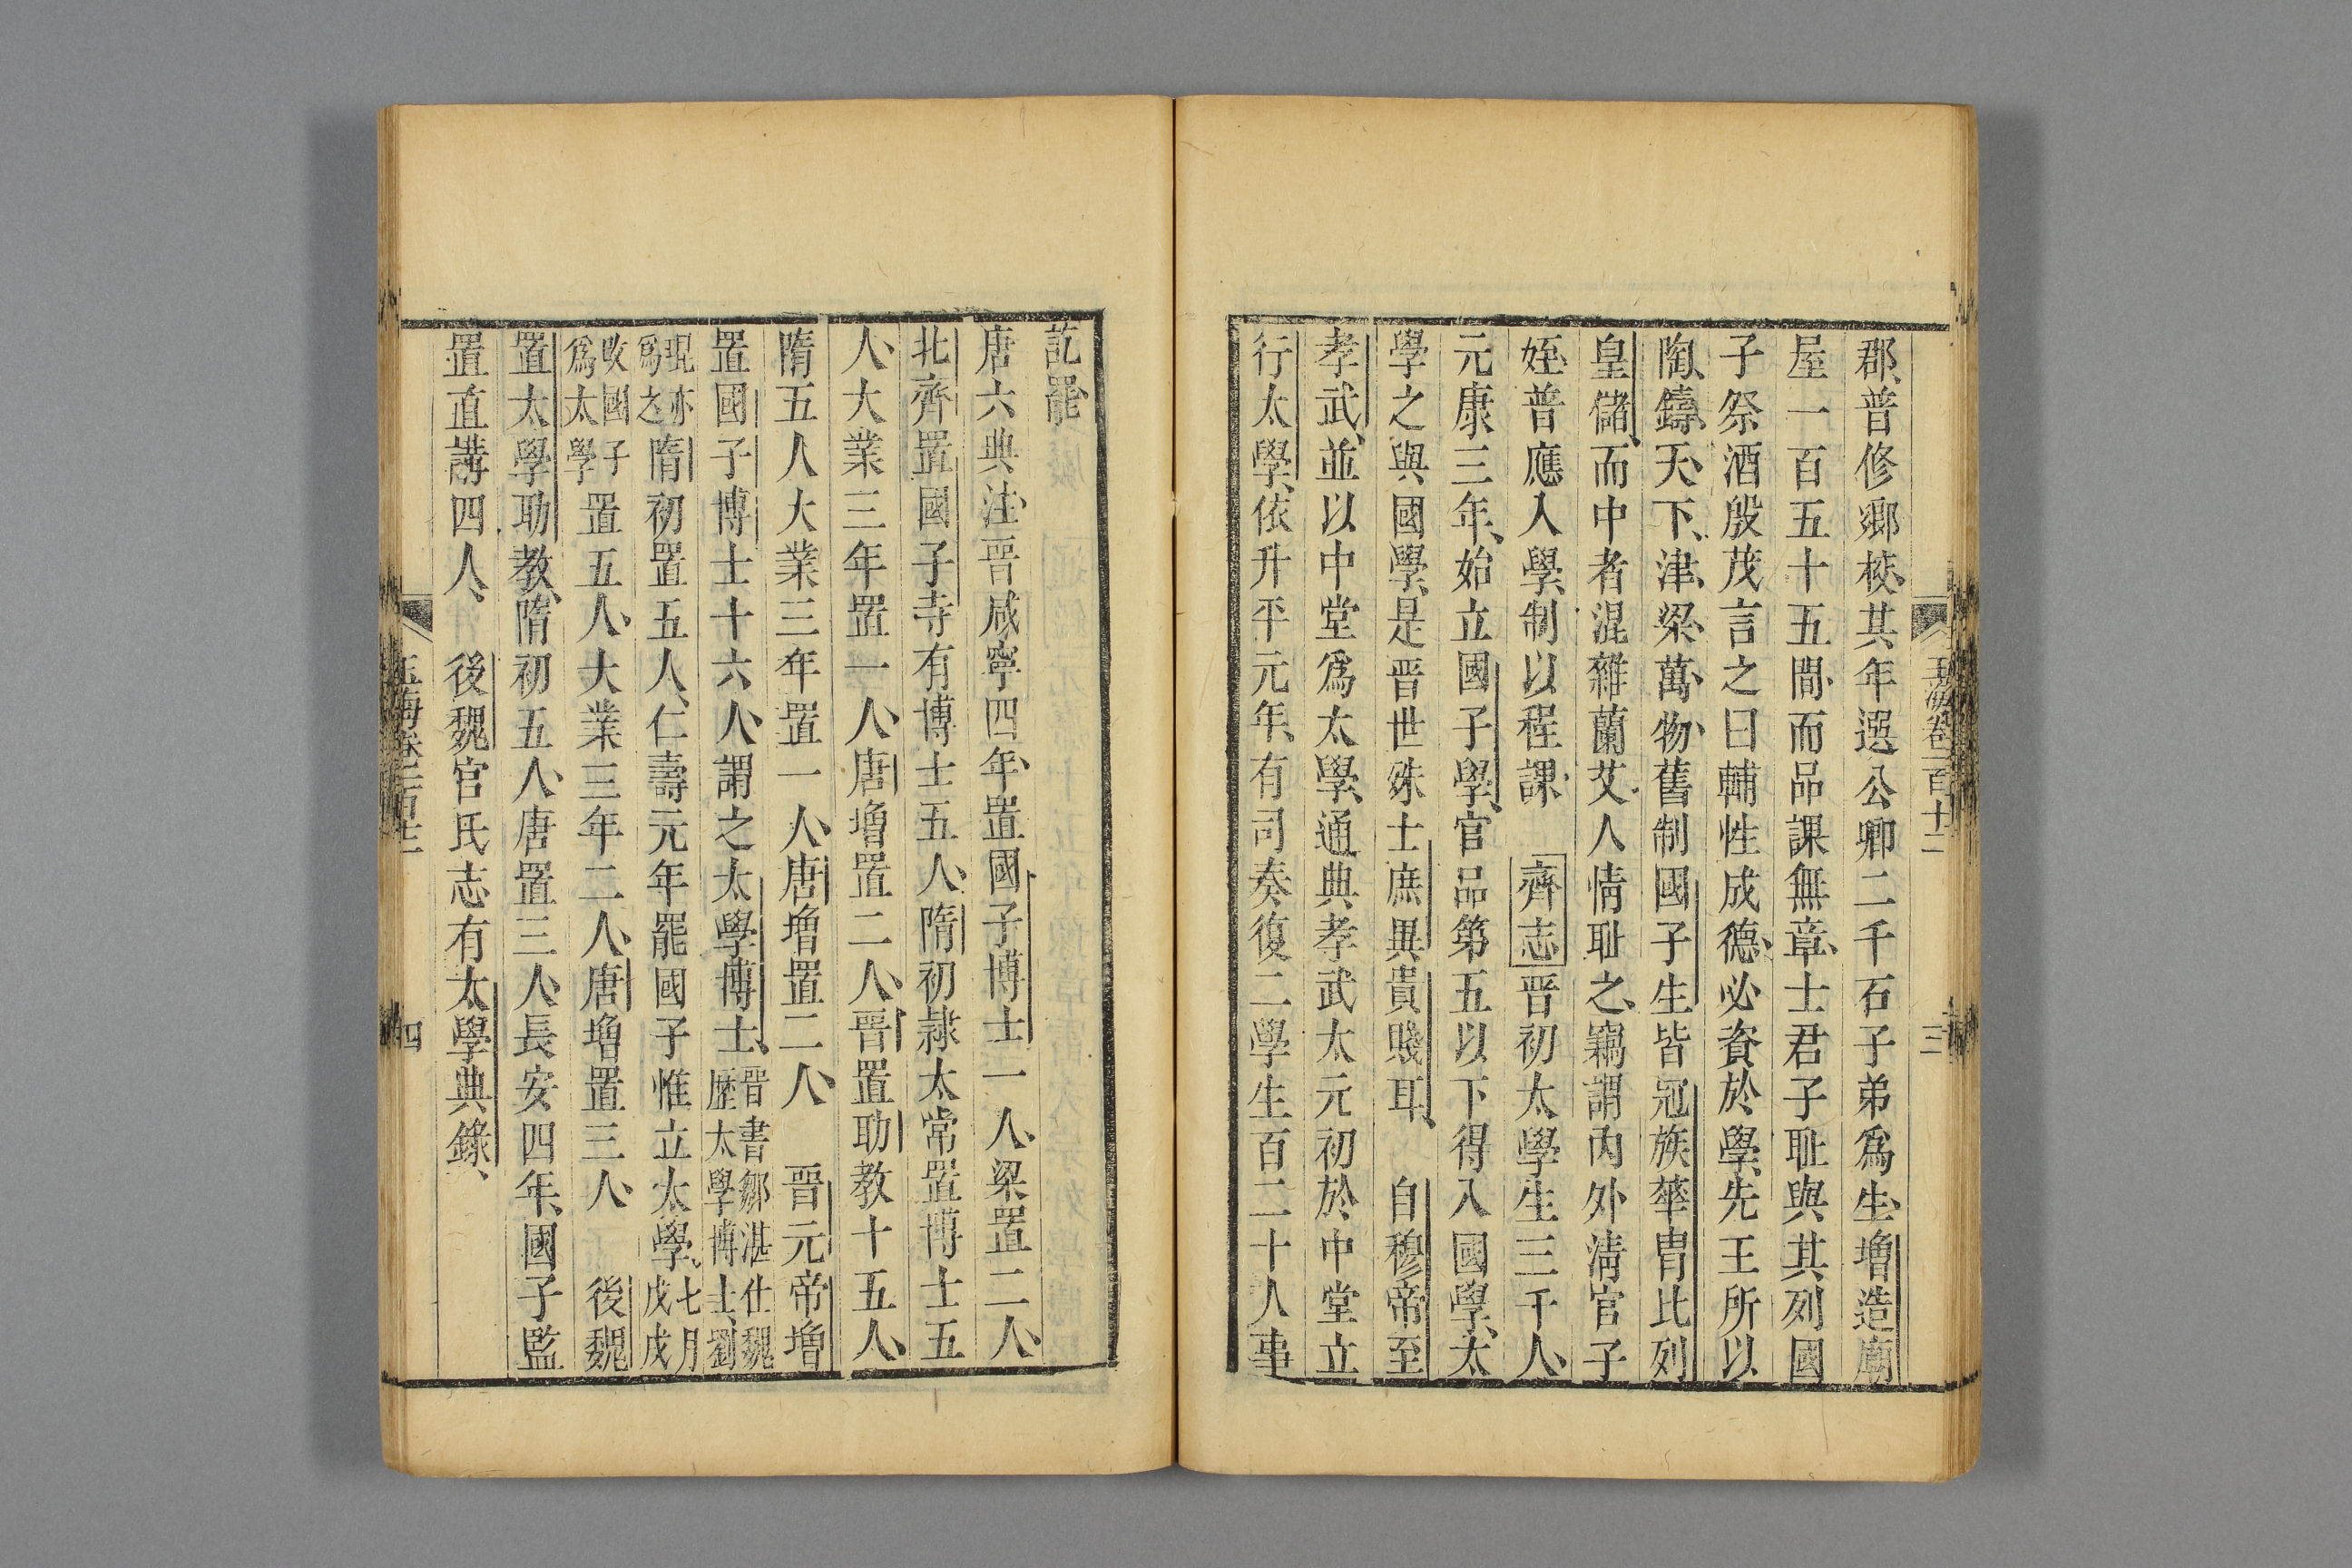 玉海卷一百十二
三
郡、普修鄉校、其年選公卿二千石子弟爲生、增造廟
屋一百五十五間、而品課無章、士君子耻與其列國
子祭酒殷茂言之曰輔性成德、必資於學、先王所以
陶、鑄、天、下、津、梁、萬、物、舊制國子生皆冠族華冑比列
皇儲、而中者混雜蘭艾、人情耻之、竊謂內外清官子
姪、普應入學、制以程課、 齊志晉初太學生三千人、
元康三年、始立國子學、官品第五以下得入國學、太
學之與國學、是晉世殊士庶異貴賤耳、 自穆帝至
孝武、並以中堂爲太學、通典孝武太元初於中堂立
行太學、依升平元年、有司奏復二學生百二十人事
訖罷、
唐六典注、晉咸寧四年、置國子博士一人、梁置二人、
北齊置國子寺有博士五人、隋初隷太常置博士五
人、大業三年置一人、唐增置二人、晉置助教十五人、
隋五人大業三年置一人、唐增置二人、 晉元帝增
置國子博士十六人、謂之太學博士、晉書鄒湛仕魏歷太學博士、劉
琨亦爲之隋初置五人、仁壽元年罷國子惟立太學、七月戊戌
改國子爲太學置五人、大業三年二人、唐增置三人、 後魏
置太學助教、隋初五人、唐置三人、長安四年、國子監
置直講四人、 後魏官氏志有太學典錄、
玉海卷一百十二
四